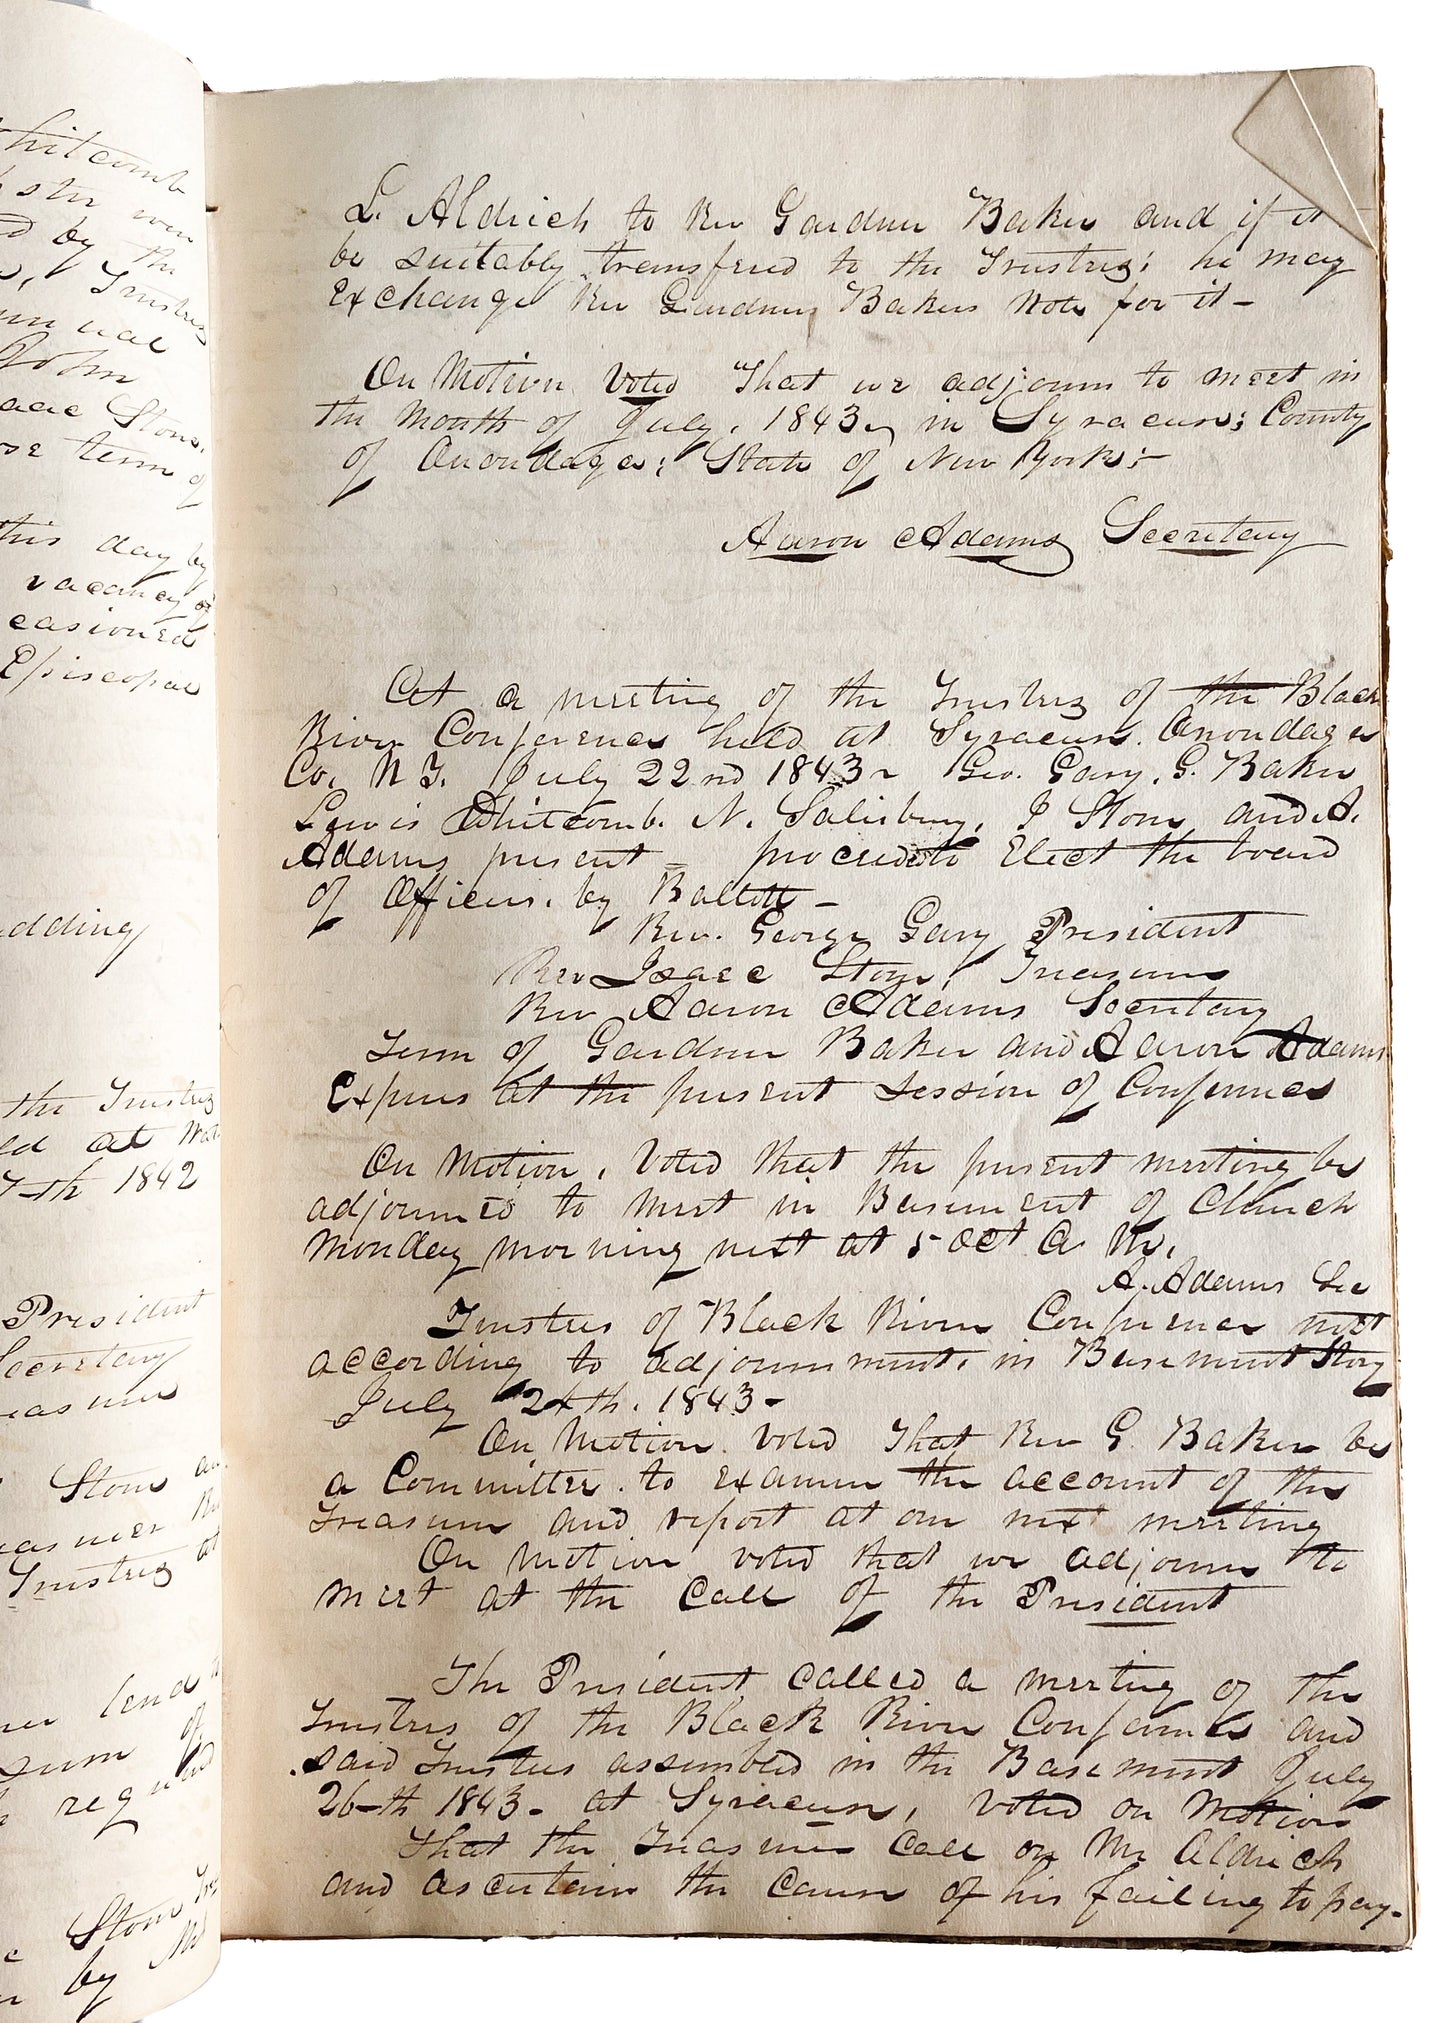 hitcomb
ster were
ed by the
s, Trustees
John
aac Stone,
ose term of
this day by
vacancy of
casioned
Episcopal
dding
the Trustees
ed at
7th 1842
President
Secretary
Stone
Trustees
lend
sum of
required
Stone
by
L. Aldrich to Rev Gardner Baker and if it
be suitably transfered to the Trustees; he may
Exchange Rev Gardners Bakers Note for it –
On Motion Voted That we adjourn to meet in
the Month of July, 1843, in Syracuse; County
of Onondaga; State of New York;–
Aaron Adams Secretary
At a meeting of the Trustees of the Black
River Conference held at Syracuse. Onondaga
Co. N Y. July 22nd 1843 – Geo. Gary, G. Baker
Lewis Whitcomb. N. Salisbury, I Stone and A.
Adams present – proceeded to Elect the board
of Officers, by Ballott –
Rev. George Gary President
Rev Isaac Stone, Treasurer
Rev Aaron Adams Secretary
Term of Gardner Baker and Aaron Adams
Expires at the present Session of Conference
On Motion, Voted that the present meeting be
adjourned to meet in Basement of Church
Monday morning next at 5 Oct A M.
A. Adams Sec
Trustees of Black River Conference met
according to adjournment, in Basement Story
July 24th. 1843 –
On Motion. Voted That Rev G. Baker be
a Committee. to Examine the account of the
Treasurer and report at our next meeting
On Motion voted that we adjourn to
meet at the Call of the President
The President called a meeting of the
Trustees of the Black River Conference and
said Trustees assembled in the Basement July
26th 1843 – at Syracuse, Voted on Motion
That the Treasurer Call on Mr Aldrich
and ascertain the Cause of his failing to pay.